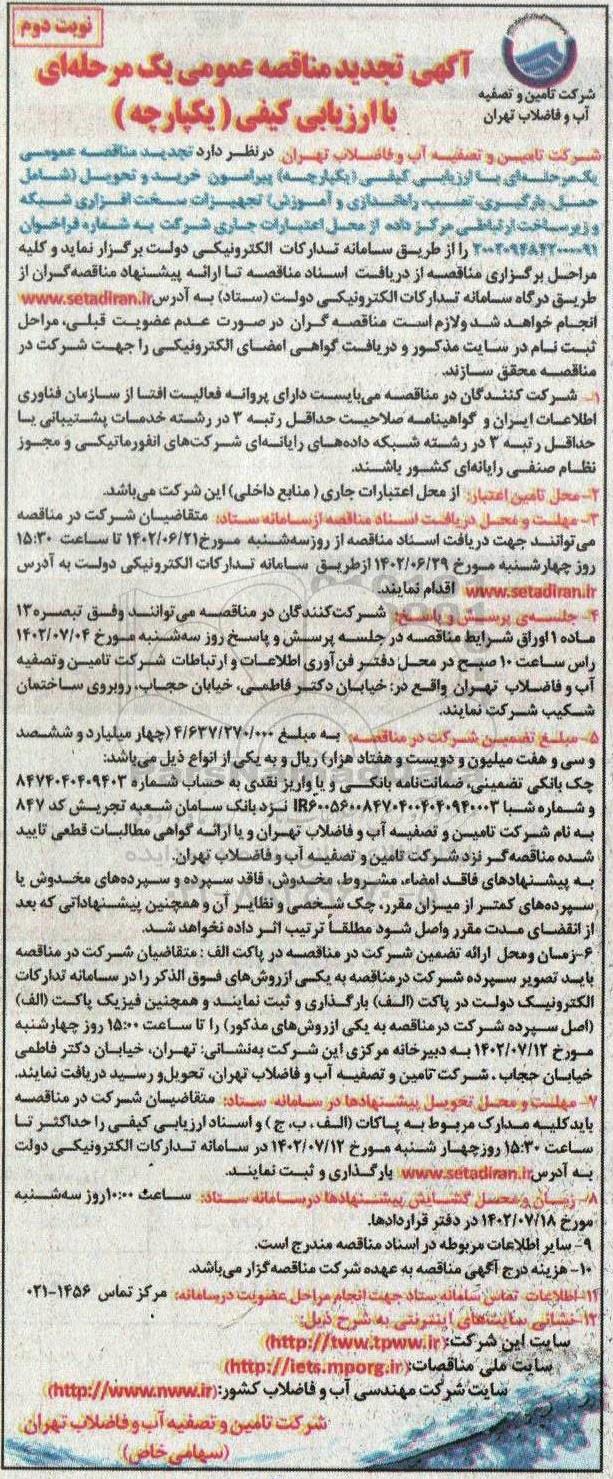 نوبت دوم
شرکت تامین و تصفیه
آب و فاضلاب تهران
آگهی تجدید مناقصه عمومی یک مرحله‌ای
با ارزیابی کیفی (یکپارچه)
شرکت تامین و تصفیه آب و فاضلاب تهران درنظر دارد تجدید مناقصه عمومی
یک‌مرحله‌ای با ارزیابی کیفی (یکپارچه) پیرامون خرید و تحویل (شامل
حمل، بارگیری، نصب، راه‌اندازی و آموزش) تجهیزات سخت افزاری شبکه
و زیرساخت ارتباطی مرکز داده از محل اعتبارات جاری شرکت به شماره فراخوان
۲۰۰۲۰۹۴۸۴۲۰۰۰۰۹۱ را از طریق سامانه تدارکات الکترونیکی دولت برگزار نماید و کلیه
مراحل برگزاری مناقصه از دریافت اسناد مناقصه تا ارائه پیشنهاد مناقصه‌گران از
طریق درگاه سامانه تدارکات الکترونیکی دولت (ستاد) به آدرس www.setadiran.ir
انجام خواهد شد ولازم است مناقصه گران در صورت عدم عضویت قبلی، مراحل
ثبت نام در سایت مذکور و دریافت گواهی امضای الکترونیکی را جهت شرکت در
مناقصه محقق سازند.
۱- شرکت کنندگان در مناقصه می‌بایست دارای پروانه فعالیت افتا از سازمان فناوری
اطلاعات ایران و گواهینامه صلاحیت حداقل رتبه ۳ در رشته خدمات پشتیبانی یا
حداقل رتبه ۳ در رشته شبکه داده‌های رایانه‌ای شرکت‌های انفورماتیکی و مجوز
نظام صنفی رایانه‌ای کشور باشند.
۲- محل تامین اعتبار: از محل اعتبارات جاری (منابع داخلی) این شرکت می‌باشد.
۳- مهلت و محل دریافت اسناد مناقصه ازسامانه ستاد: متقاضیان شرکت در مناقصه
می‌توانند جهت دریافت اسناد مناقصه از روزسه‌شنبه مورخ ۱۴۰۲/۰۶/۲۱ تا ساعت ۱۵:۳۰
روز چهارشنبه مورخ ۱۴۰۲/۰۶/۲۹ ازطریق سامانه تدارکات الکترونیکی دولت به آدرس
www.setadiran.ir اقدام نمایند.
۴- جلسه‌ی پرسش و پاسخ: شرکت‌کنندگان در مناقصه می‌توانند وفق تبصره ۱۳
ماده ۱ اوراق شرایط مناقصه در جلسه پرسش و پاسخ روز سه‌شنبه مورخ ۱۴۰۲/۰۷/۰۴
راس ساعت ۱۰ صبح در محل دفتر فن‌آوری اطلاعات و ارتباطات شرکت تامین وتصفیه
آب و فاضلاب تهران واقع در: خیابان دکتر فاطمی، خیابان حجاب، روبروی ساختمان
شکیب شرکت نمایند.
۵- مبلغ تضمین شرکت در مناقصه: به مبلغ ۴/۶۳۷/۲۷۰/۰۰۰ (چهار میلیارد و ششصد
و سی و هفت میلیون و دویست و هفتاد هزار) ریال و به یکی از انواع ذیل می‌باشد:
چک بانکی تضمینی، ضمانت‌نامه بانکی و یا واریز نقدی به حساب شماره ۸۴۷۴۰۴۰۴۰۹۴۰۳
و شماره شبا IR۶۰۰۵۶۰۰۸۴۷۰۴۰۰۴۰۴۰۹۴۰۰۳ نزد بانک سامان شعبه تجریش کد ۸۴۷
به نام شرکت تامین و تصفیه آب و فاضلاب تهران و یا ارائه گواهی مطالبات قطعی تایید
شده مناقصه‌گر نزد شرکت تامین و تصفیه آب و فاضلاب تهران.
به پیشنهادهای فاقد امضاء، مشروط، مخدوش، فاقد سپرده و سپرده‌های مخدوش یا
سپرده‌های کمتر از میزان مقرر، چک شخصی و نظایر آن و همچنین پیشنهاداتی که بعد
از انقضای مدت مقرر واصل شود مطلقاً ترتیب اثر داده نخواهد شد.
۶-زمان ومحل ارائه تضمین شرکت در مناقصه در پاکت الف : متقاضیان شرکت در مناقصه
باید تصویر سپرده شرکت درمناقصه به یکی ازروش‌های فوق الذکر را در سامانه تدارکات
الکترونیک دولت در پاکت (الف) بارگذاری و ثبت نمایند و همچنین فیزیک پاکت (الف)
(اصل سپرده شرکت درمناقصه به یکی ازروش‌های مذکور) را تا ساعت ۱۵:۰۰ روز چهارشنبه
مورخ ۱۴۰۲/۰۷/۱۲ به دبیرخانه مرکزی این شرکت به‌نشانی: تهران، خیابان دکتر فاطمی
خیابان حجاب ، شرکت تامین و تصفیه آب و فاضلاب تهران، تحویل و رسید دریافت نمایند.
۷- مهلت و محل تحویل پیشنهادها در سامانه ستاد: متقاضیان شرکت در مناقصه
بایدکلیه مدارک مربوط به پاکات (الف ، ب، ج) و اسناد ارزیابی کیفی را حداکثر تا
ساعت ۱۵:۳۰ روزچهار شنبه مورخ ۱۴۰۲/۰۷/۱۲ در سامانه تدارکات الکترونیکی دولت
به آدرس www.setadiran.ir بارگذاری و ثبت نمایند.
۸- زمان و محل گشایش پیشنهادها درسامانه ستاد: ساعت ۱۰:۰۰روز سه‌شنبه
مورخ ۱۴۰۲/۰۷/۱۸ در دفتر قراردادها.
۹- سایر اطلاعات مربوطه در اسناد مناقصه مندرج است.
۱۰- هزینه درج آگهی مناقصه به عهده شرکت مناقصه‌گزار می‌باشد.
۱۱-اطلاعات تماس سامانه ستاد جهت انجام مراحل عضویت درسامانه: مرکز تماس ۱۴۵۶-۰۲۱
۱۲-نشانی سایت‌های اینترنتی به شرح ذیل:
سایت این شرکت: (http://tww.tpww.ir)
سایت ملی مناقصات: (http://iets.mporg.ir)
سایت شرکت مهندسی آب و فاضلاب کشور: (http://www.nww.ir)
شرکت تامین و تصفیه آب و فاضلاب تهران
(سهامی خاص)